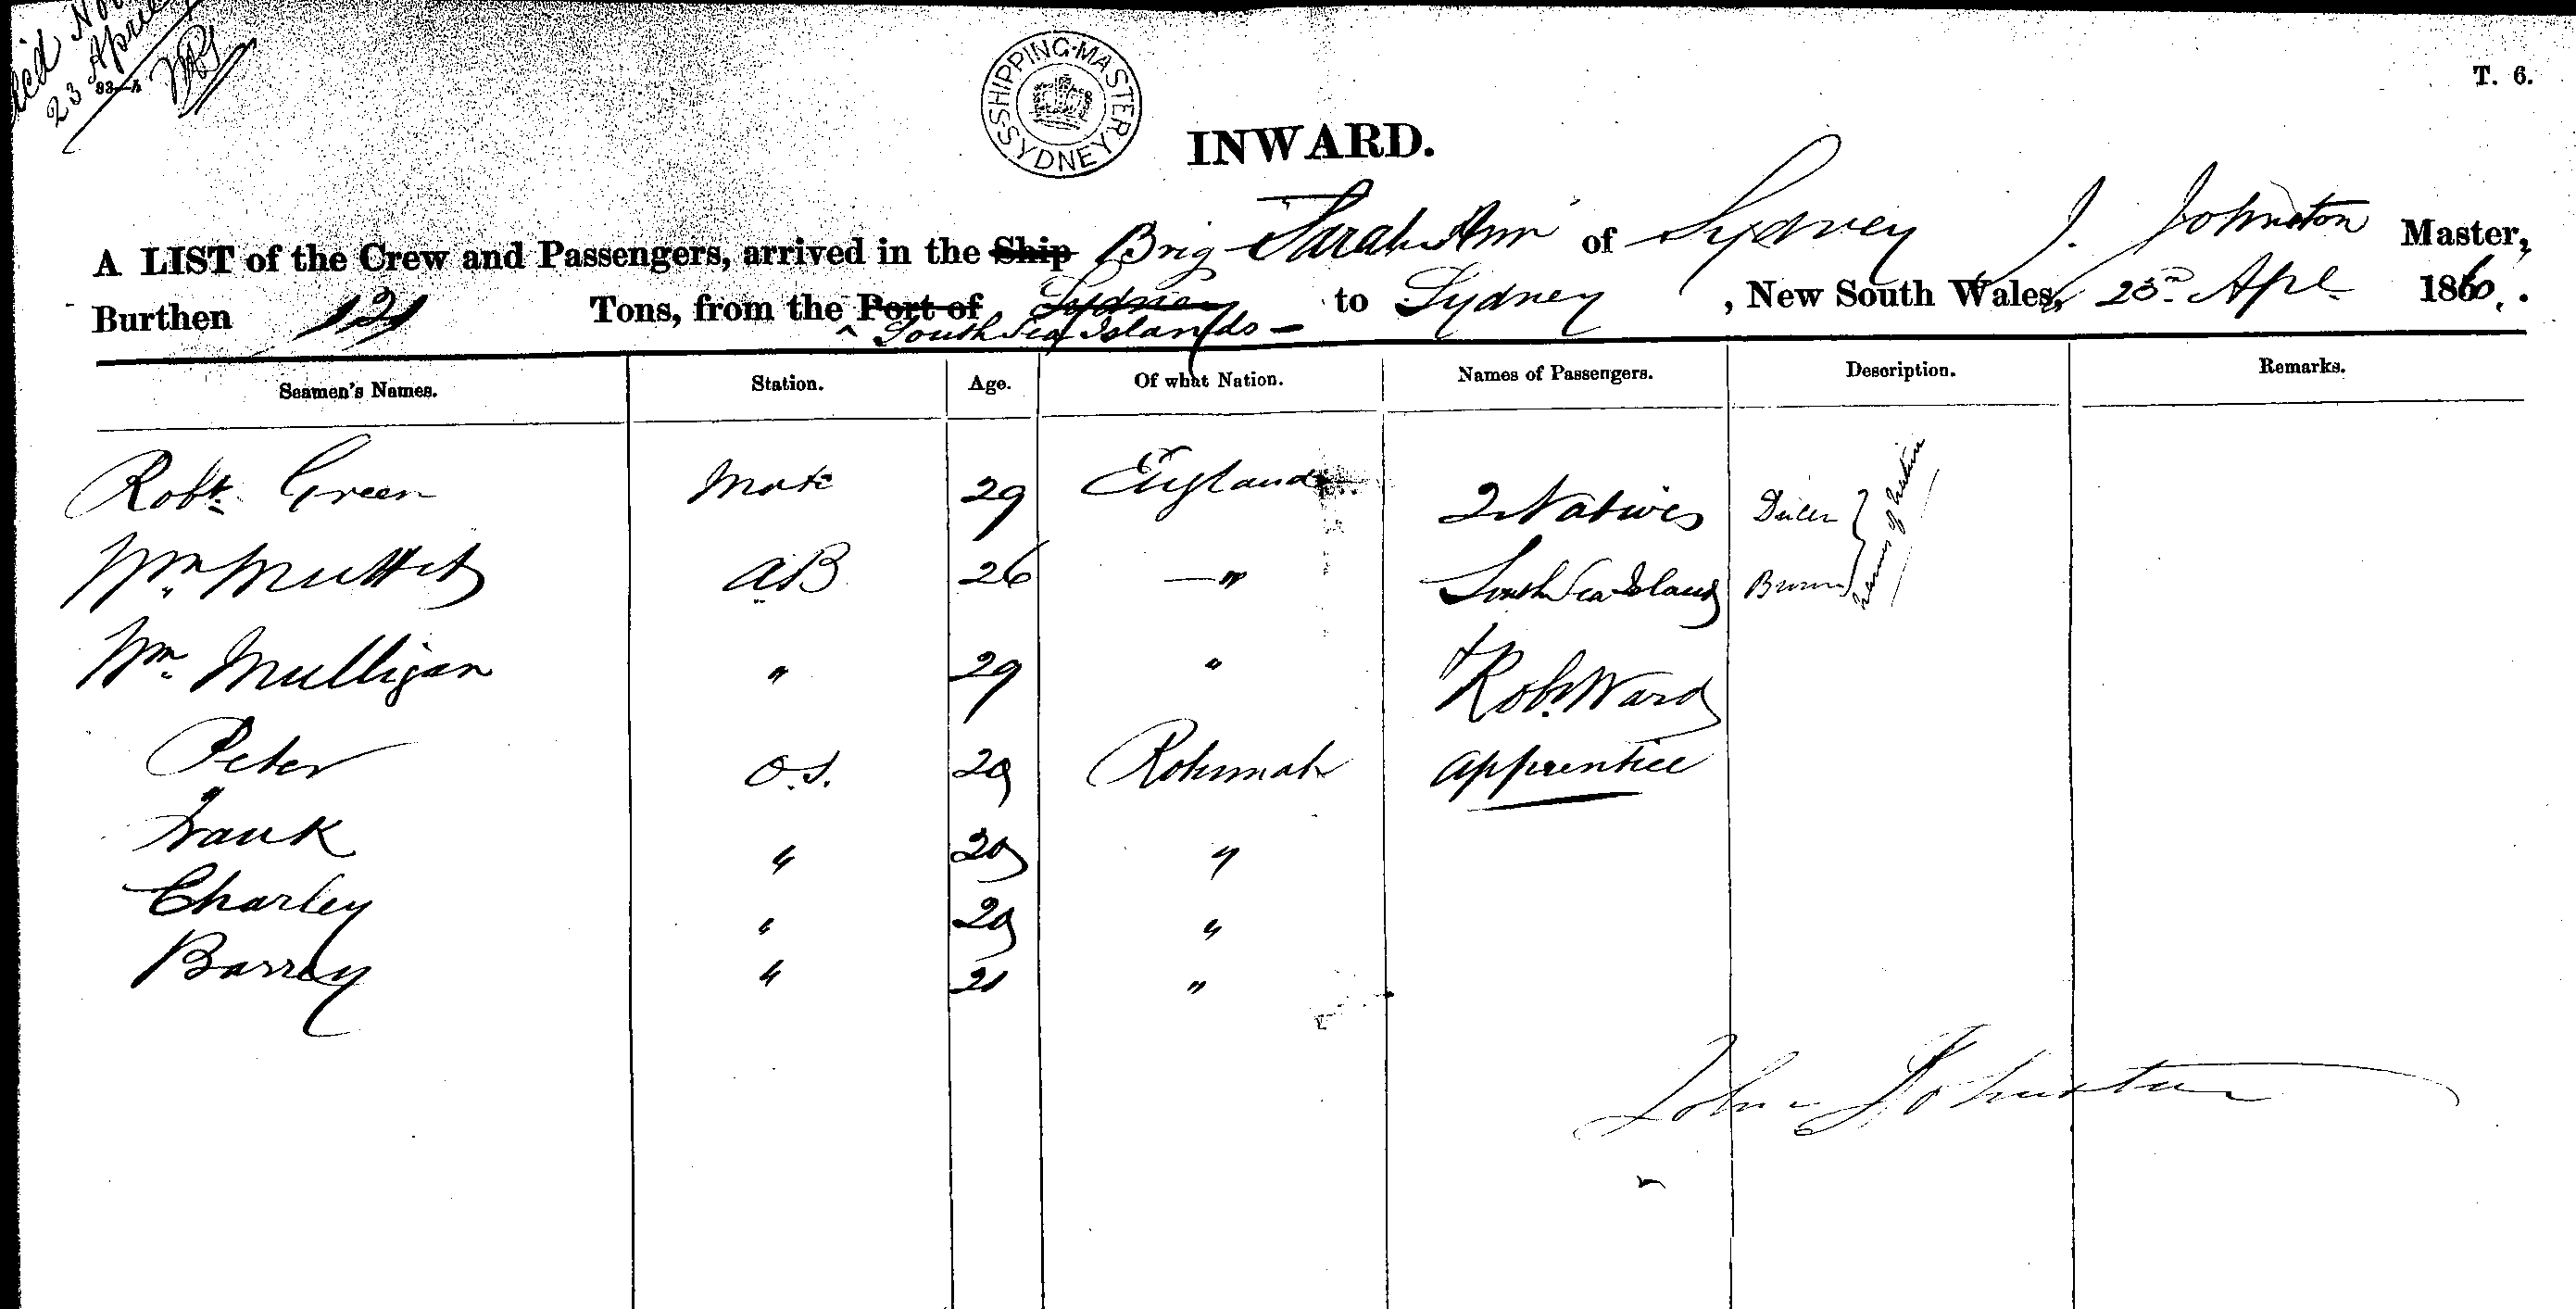 23 April
93—A
SHIPPING·MASTER
SYDNEY
T. 6.
INWARD.
A LIST of the Crew and Passengers, arrived in the Ship Brig Sarah Ann of Sydney J. Johnston Master,
Burthen 121 Tons, from the Port of Sydney to Sydney, New South Wales, 23rd Apl 1860.
^ South Sea Islands —
Seamen's Names. Station. Age. Of what Nation. Names of Passengers. Description. Remarks.
Robt. Green Mate 29 England 2 Natives
Wm. A.B 26 — " South Sea Islands
Wm. Mulligan " 29 " + Robt. Ward
Peter O.S. 20 Rotumah apprentice
Frank " 20 "
Charley " 20 "
Barrey " 21 "
John Johnston